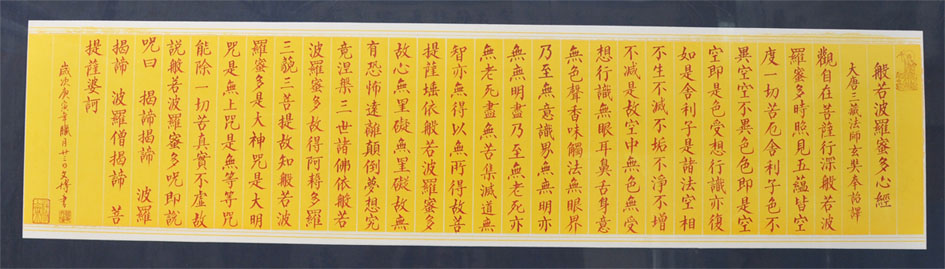 般若波羅蜜多心經
大唐三藏法師玄奘奉詔譯
觀自在菩薩行深般若波
羅蜜多時照見五蘊皆空
度一切苦厄舍利子色不
異空空不異色色即是空
空即是色受想行識亦復
如是舍利子是諸法空相
不生不滅不垢不淨不增
不減是故空中無色無受
想行識無眼耳鼻舌身意
無色聲香味觸法無眼界
乃至無意識界無無明亦
無無明盡乃至無老死亦
無老死盡無苦集滅道無
智亦無得以無所得故菩
提薩埵依般若波羅蜜多
故心無罣礙無罣礙故無
有恐怖遠離顛倒夢想究
竟涅槃三世諸佛依般若
波羅蜜多故得阿耨多羅
三藐三菩提故知般若波
羅蜜多是大神咒是大明
咒是無上咒是無等等咒
能除一切苦真實不虛故
說般若波羅蜜多咒即說
咒曰 揭諦揭諦 波羅
揭諦 波羅僧揭諦 菩
提薩婆訶
歲次庚寅年臘月廿三日